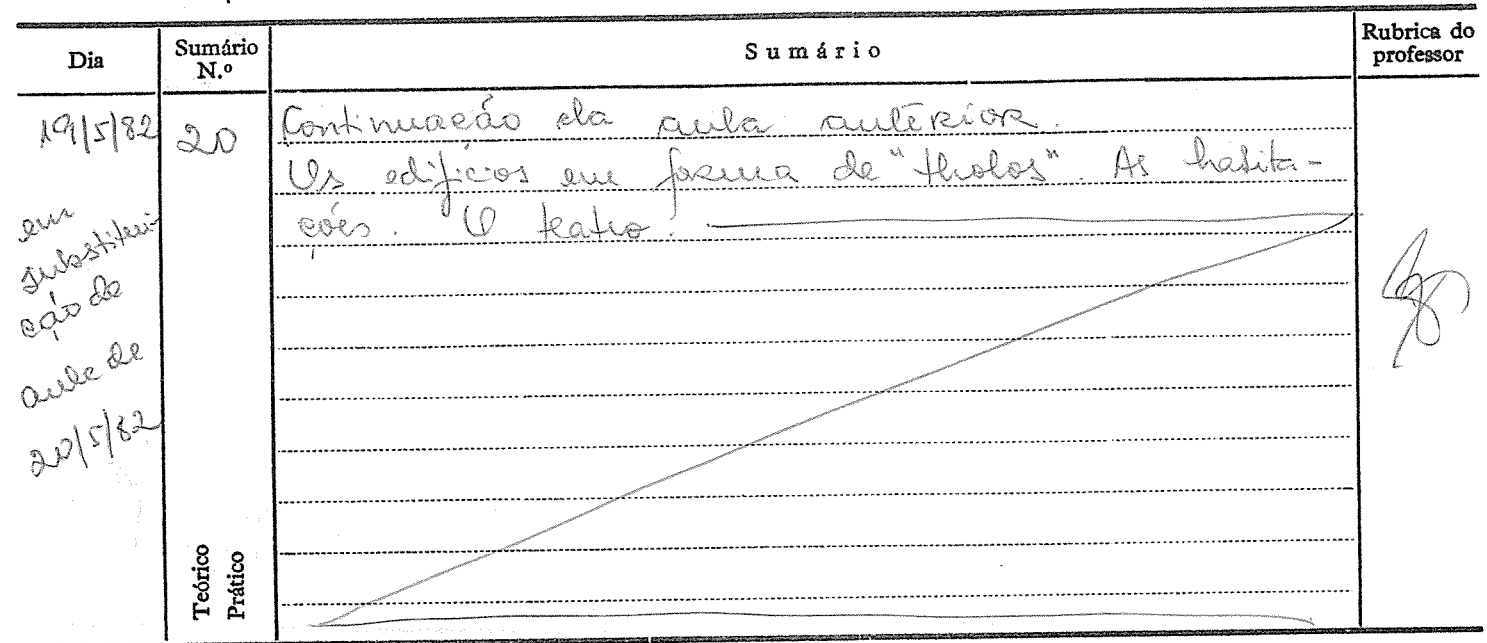 Dia
Sumário
N.º
Sumário
Rubrica do
professor
19/5/82
em
substitui-
ção de
aula de
20/5/82
20
Continuação da aula anterior.
Os edifícios em forma de "tholos". As habita-
ções. O teatro.
Teórico
Prático